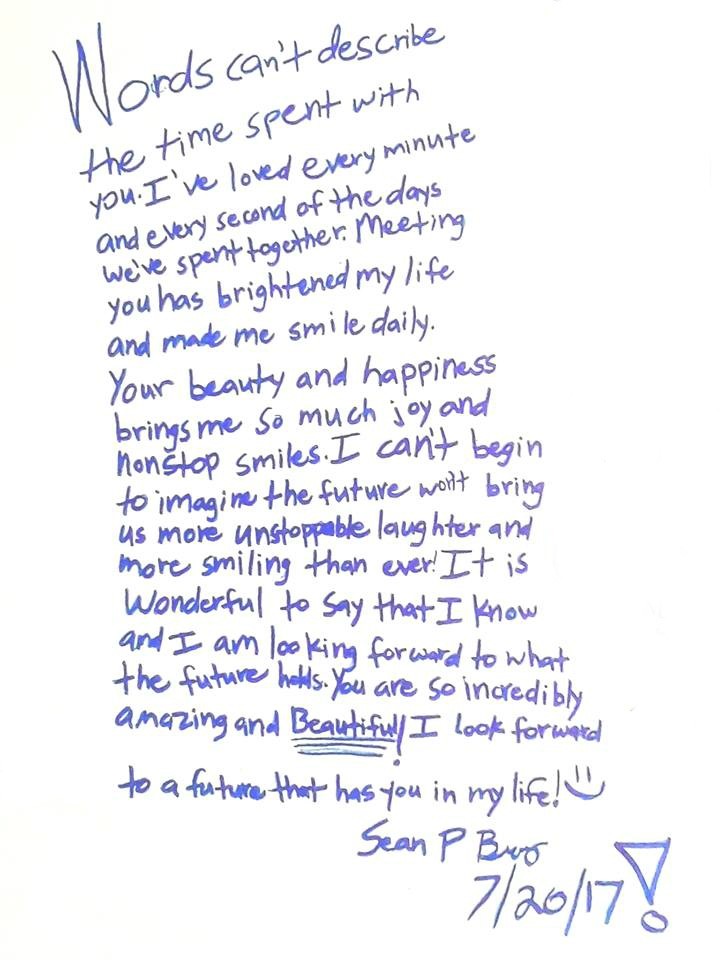 Words can't describe
the time spent with
you. I've loved every minute
and every second of the days
we've spent together. Meeting
you has brightened my life
and made me smile daily.
Your beauty and happiness
brings me so much joy and
nonstop smiles. I can't begin
to imagine the future won't bring
us more unstoppable laughter and
more smiling than ever! It is
Wonderful to say that I know
and I am looking forward to what
the future holds. You are so incredibly
amazing and Beautiful! I look forward
to a future that has you in my life!
Sean P
7/20/17!